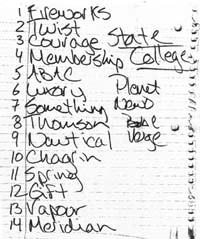 1 Fireworks
2 Twist
3 Courage State
4 Membership College
5 ABAC
6 Luxury Planet
7 Something News
8 Thomson
9 Nautical Verse
10 Chagrin
11 Spring
12 Gift
13 Vapour
14 Meridian